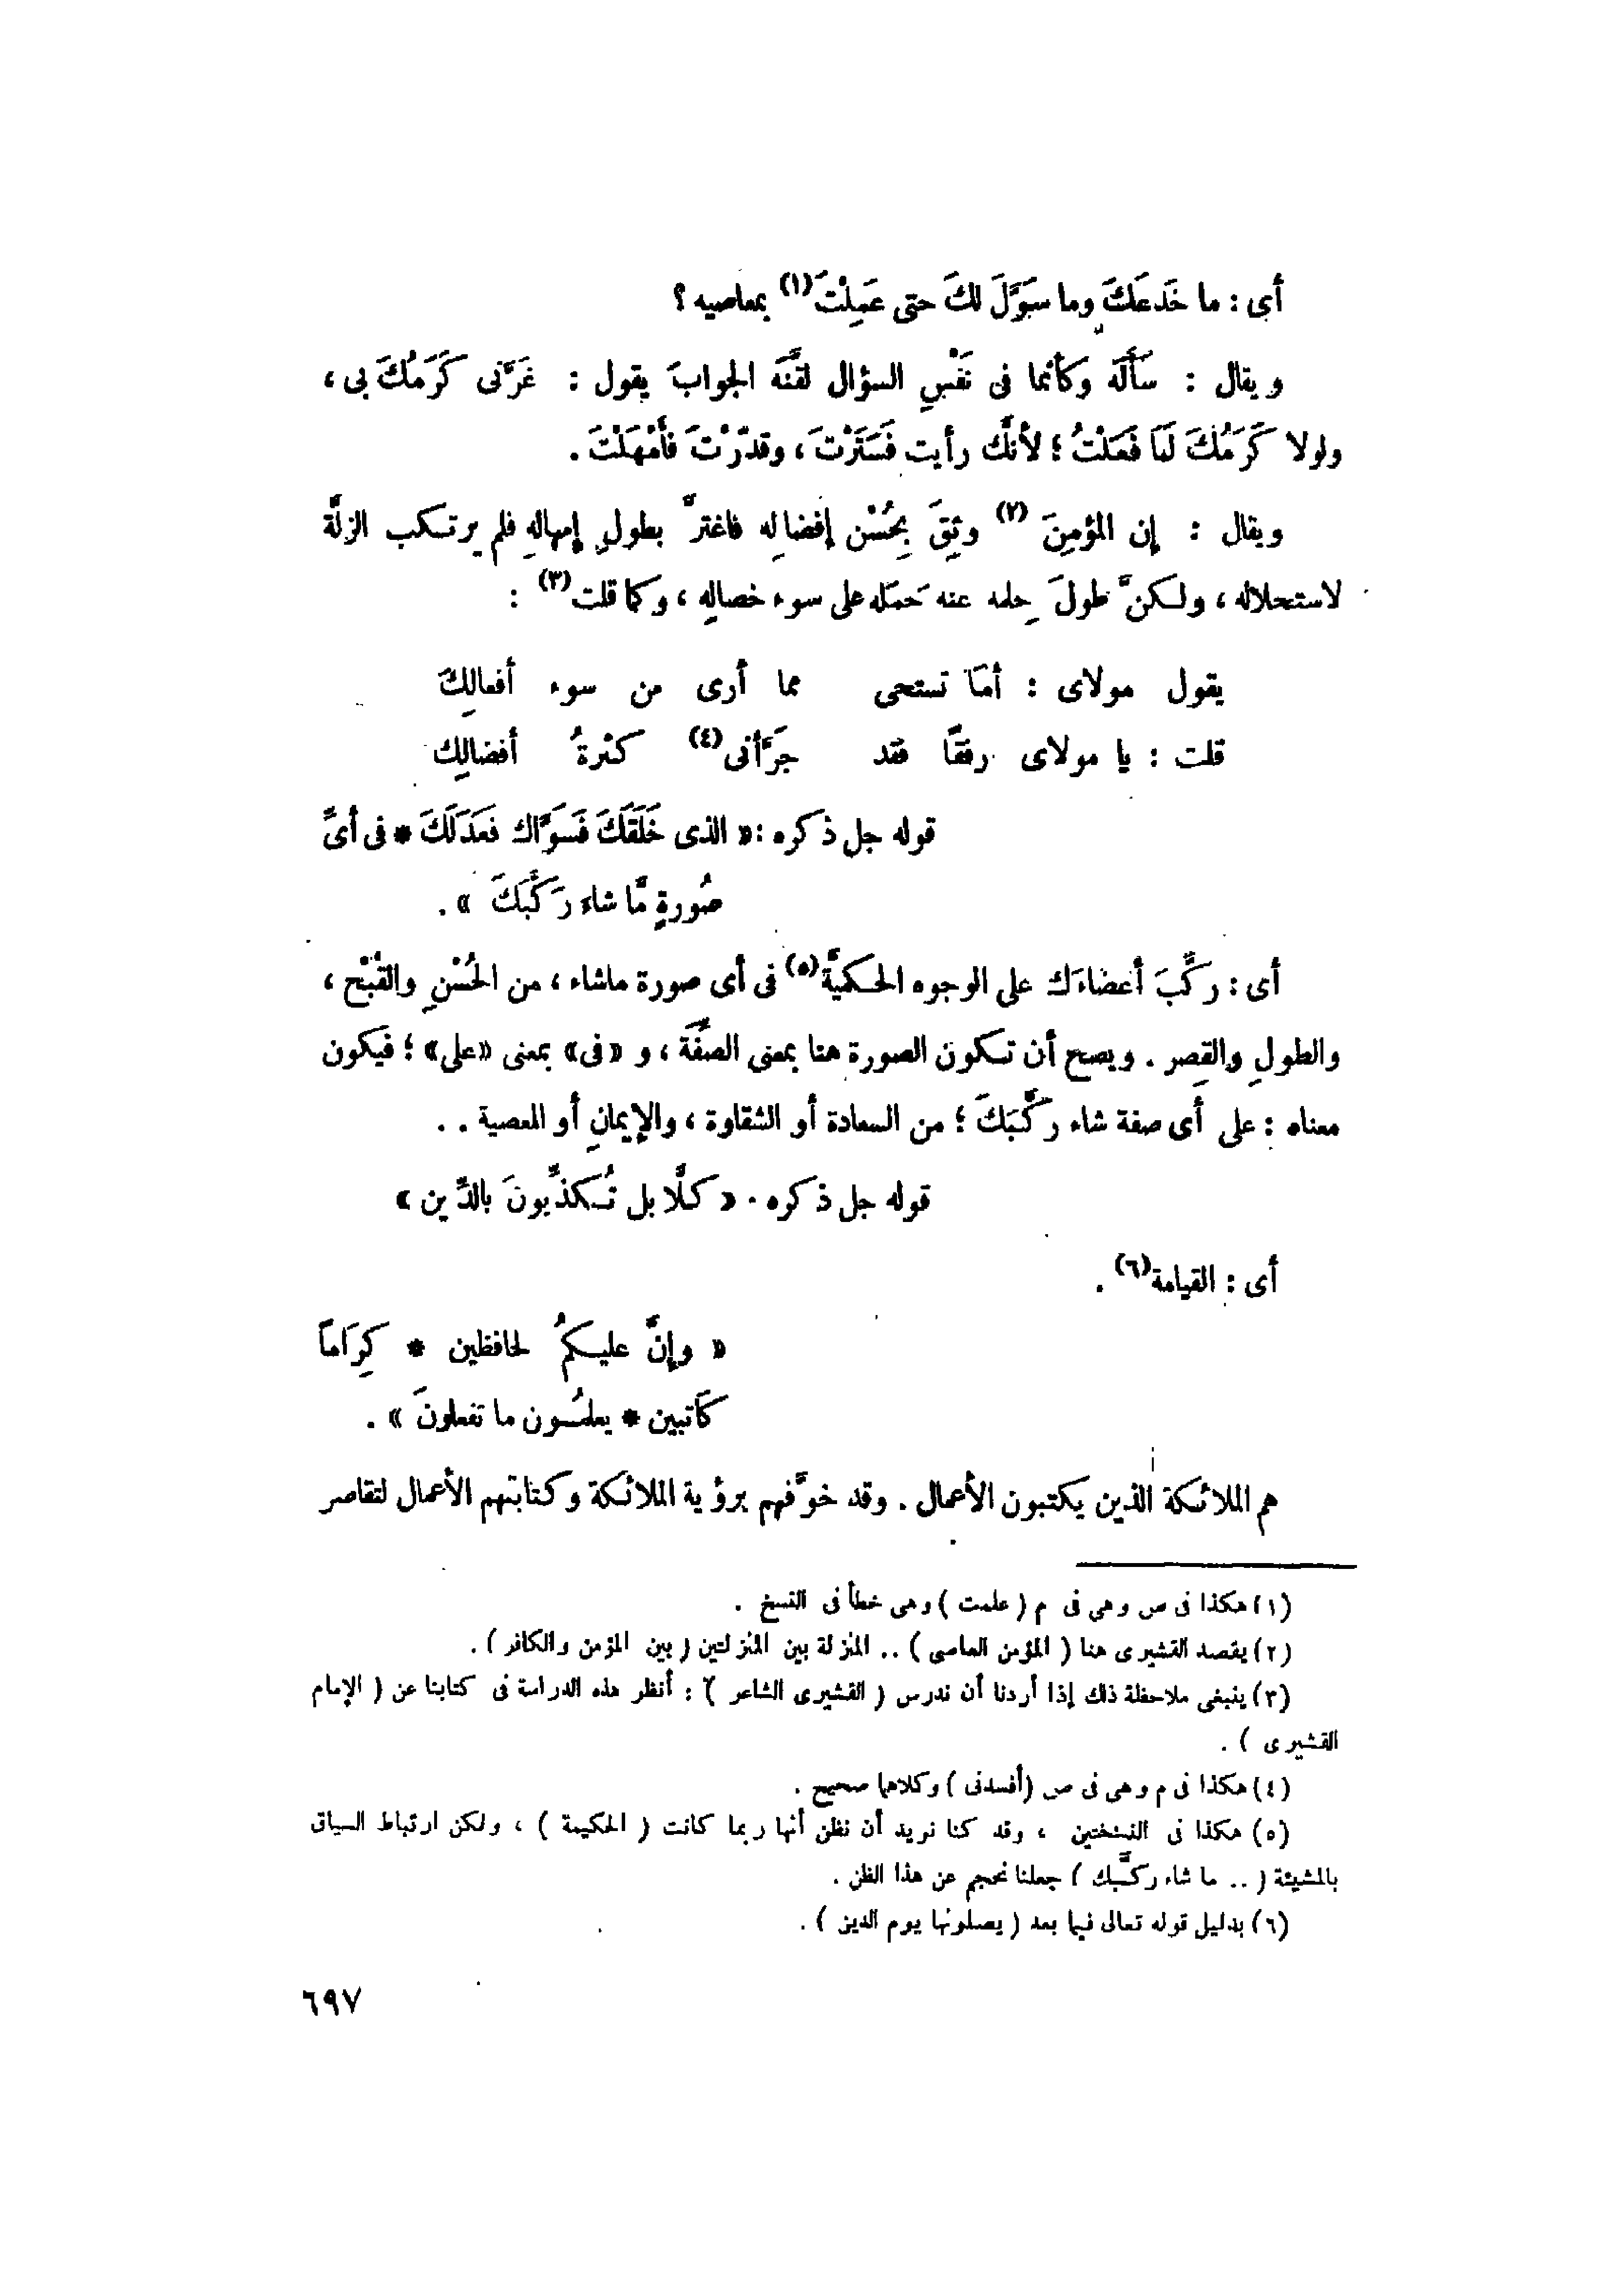 أى : ما خَدعَكَ وما سَوَّلَ لكَ حتى عَمِلْتَ(١) بمعاصيه ؟
ويقال : سَأَلَه وكأنما فى نَفْسِ السؤال لقَّنَه الجوابَ يقول : غَرَّنى كَرَمُكَ بى ،
ولولا كَرَمُكَ لَمَا فَعَلْتُ ؛ لأنَّك رأيت فَسَتَرْتَ ، وقدّرْتَ فأَمْهَلْتَ .
ويقال : إن المؤمِنَ (٢) وثِقَ بِحُسْن إفضالِه فاغترَّ بطولِ إمهالِهِ فلم يرتكب الزلَّة
لاستحلاله ، ولكنَّ طولَ حِلمه عنه حَمَله على سوء خصالِهِ ، وكما قلت(٣) :
يقول مولاى : أمَا تستحى مما أرى من سوء أفعالِكَ
قلت : يا مولاى رفقًا فقد جَرَّأنى(٤) كثرةُ أفضالِكَ
قوله جل ذكره : « الذى خَلَقَكَ فَسَوَّاك فعَدَلَكَ * فى أىِّ
صُورةٍ مَّا شاءَ رَكَّبَكَ » .
أى : ركَّبَ أعضاءَك على الوجوه الحكميَّة(٥) فى أى صورة ماشاء ، من الحُسْنِ والقُبْح ،
والطولِ والقِصر . ويصح أن تكون الصورة هنا بمعنى الصِّفَة ، و « فى» بمعنى «على» ؛ فيكون
معناه : على أى صفة شاء ركَّبَكَ ؛ من السعادة أو الشقاوة ، والإيمانِ أو المعصية . .
قوله جل ذكره . « كلَّا بل تُكذِّبونَ بالدِّين »
أى : القيامة(٦) .
« وإنَّ عليكمُ لحافظين * كِرَاماً
كاَتبين * يعلمُون ما تفعلونَ » .
هم الملائكة الذين يكتبون الأعمال . وقد خوَّفهم برؤية الملائكة وكتابتهم الأعمال لتقاصر
(١) هكذا فى ص وهى فى م ( علمت ) وهى خطأ فى النسخ .
(٢) يقصد القشيرى هنا ( المؤمن العاصى ) .. المنزلة بين المنزلتين ( بين المؤمن والكافر ) .
(٣) ينبغى ملاحظة ذلك إذا أردنا أن ندرس ( القشيرى الشاعر ) : أنظر هذه الدراسة فى كتابنا عن ( الإمام
القشيرى ) .
(٤) هكذا فى م وهى فى ص (أفسدنى ) وكلاهما صحيح .
(٥) هكذا فى النسختين ، وقد كنا نريد أن نظن أنها ربما كانت ( الحكيمة ) ، ولكن ارتباط السياق
بالمشيئة ( .. ما شاء ركَّبك ) جعلنا نحجم عن هذا الظن .
(٦) بدليل قوله تعالى فيما بعد ( يصلونها يوم الدين ) .
٦٩٧